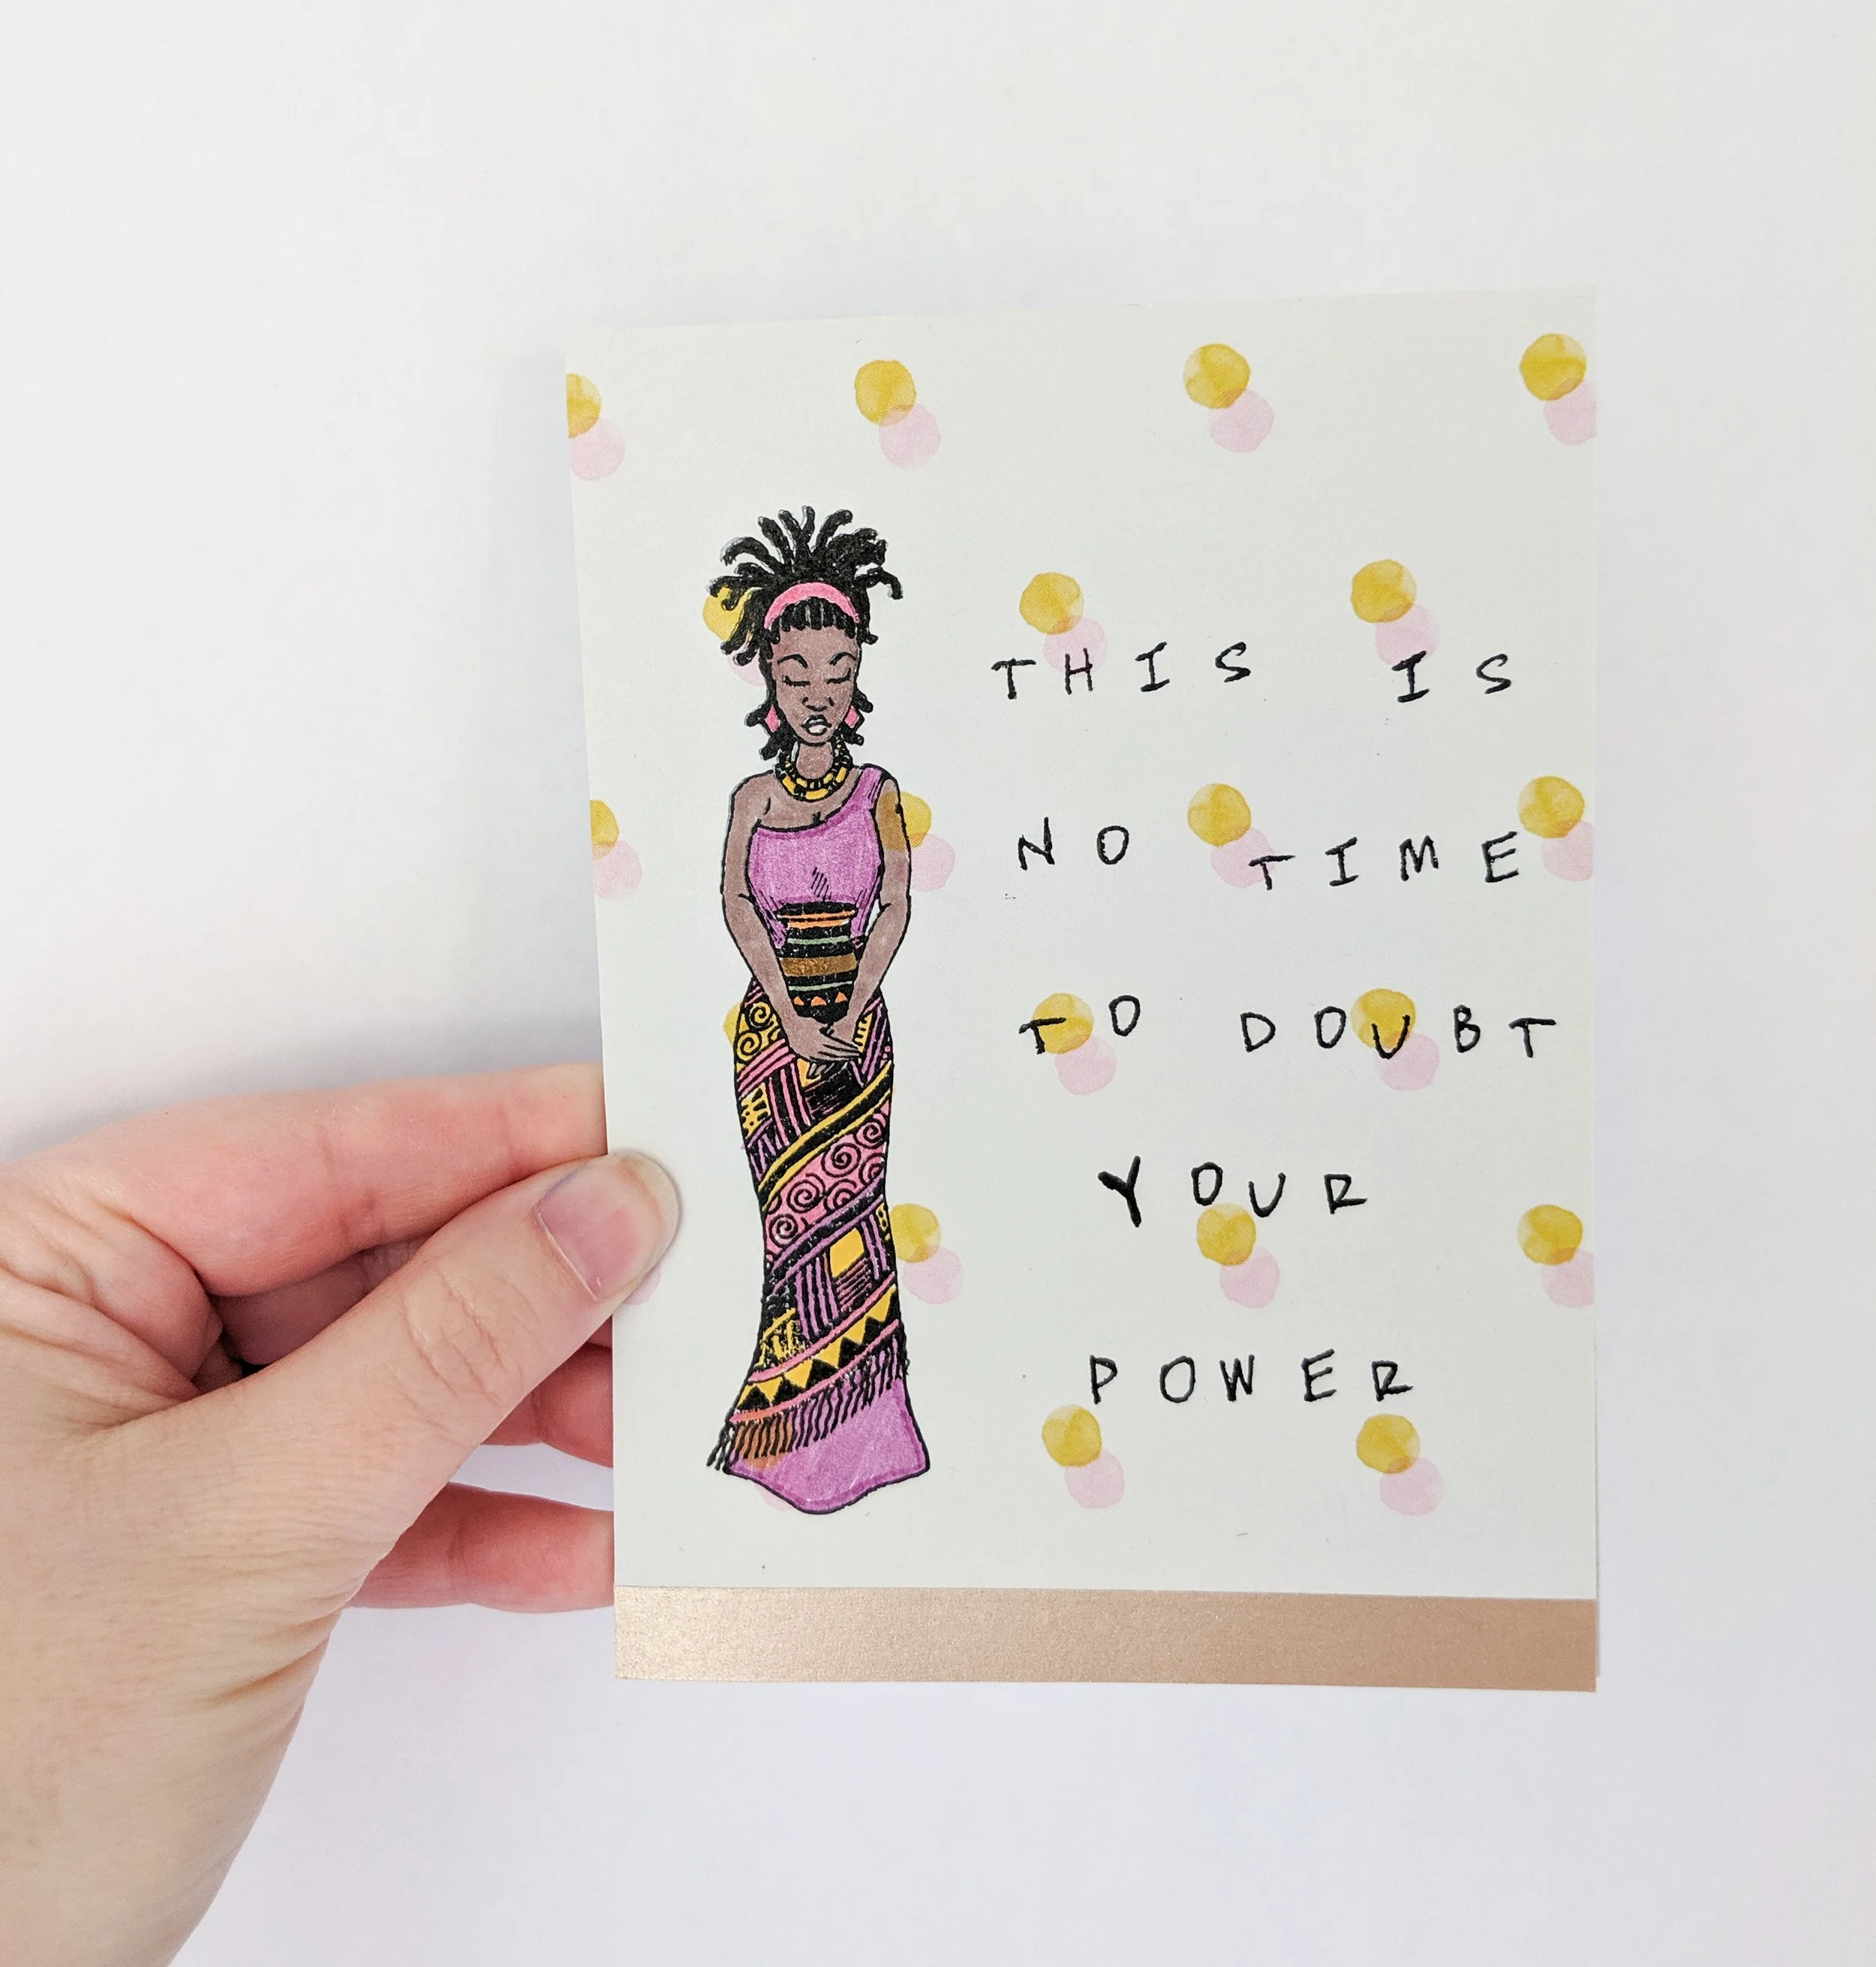 THIS IS
NO TIME
TO DOUBT
YOUR
POWER